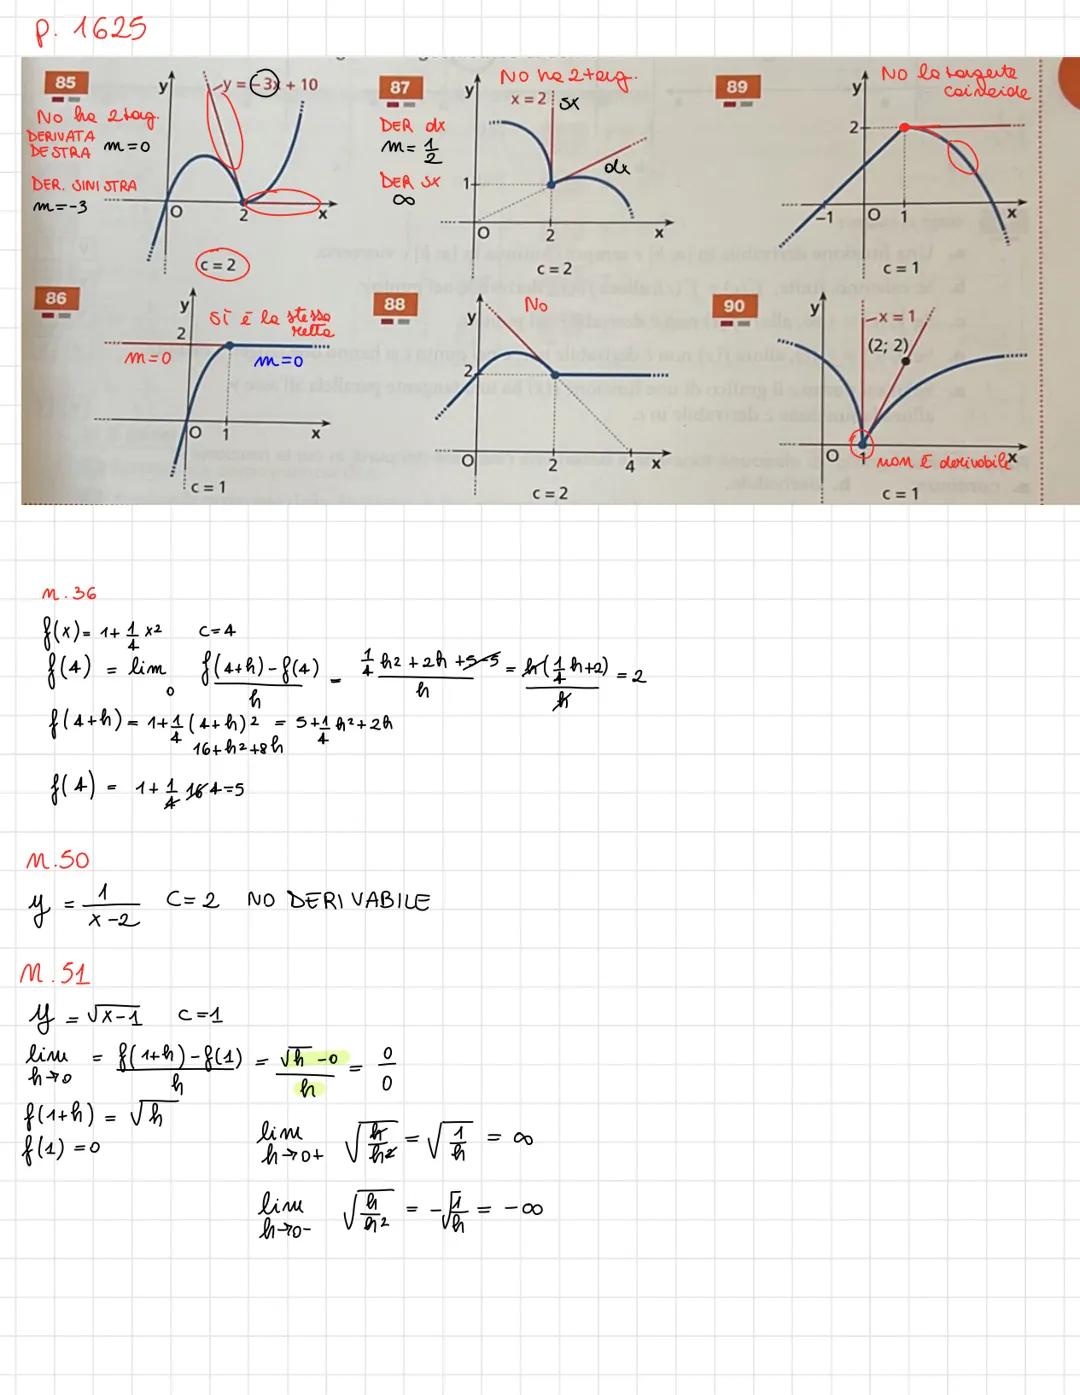 p. 1625
85
y
y = -3x + 10
No ha 2 tag.
DERIVATA
DESTRA m=0
DER. SINISTRA
m=-3
O
2
x
c = 2
87
No ha 2 tang.
y
x = 2
sx
DER dx
m= 1/2
dx
DER sx
∞
1
O
2
x
c = 2
89
No la tangente
coincide
y
2
-1
O
1
x
c = 1
86
y
2
sì è la stessa
retta
m=0
m=0
O
1
x
c = 1
88
No
y
2
O
2
4
x
c = 2
90
y
x = 1
(2; 2)
O
1
x
non è derivabile
c = 1
n.36
f(x)= 1+ 1/4 x² c=4
f(4) = lim 0 f(4+h)-f(4)/h = 1/4 h²+2h+5-5/h = h(1/4 h+2)/h = 2
f(4+h) = 1+1/4 (4+h)² = 5+1/4 h²+2h
16+h²+8h
f(4) = 1+ 1/4 16 4=5
n.50
y = 1/x-2 C=2 NO DERIVABILE
n.51
y = √x-1 c=1
lim h→0 = f(1+h)-f(1)/h = √h -0/h = 0/0
f(1+h) = √h
f(1) =0
lim h→0+ √h/h² = √1/h = ∞
lim h→0- √h/h² = -√1/h = -∞